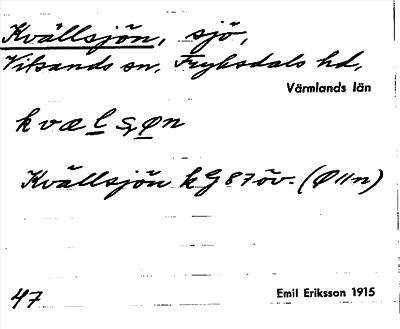 Kvällsjön, sjö,
Vitsands sn, Fryksdals hd,
Värmlands län
kvælʂøn
Kvällsjön kG 87öv. (Ø11n)
47
Emil Eriksson 1915